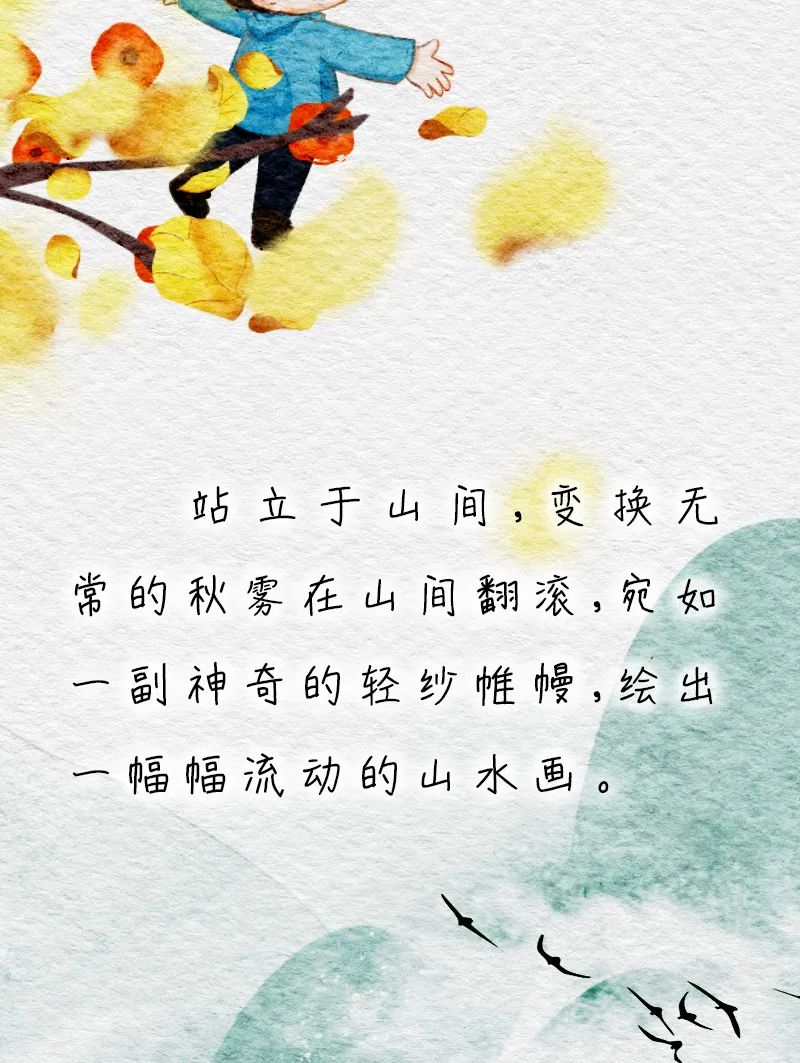 站立于山间,变换无
常的秋雾在山间翻滚,宛如
一副神奇的轻纱帷幔,绘出
一幅幅流动的山水画。